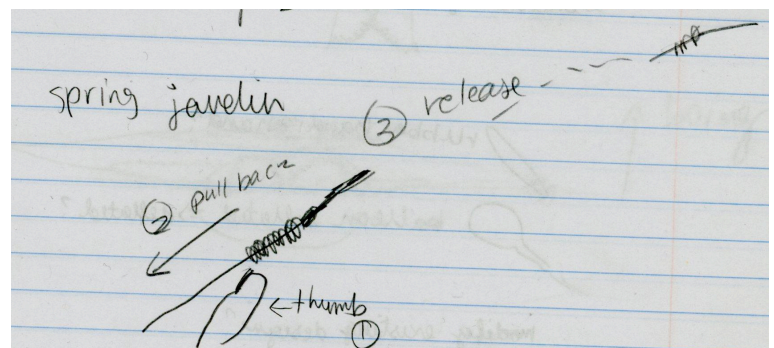 spring javelin
③ release
② pull back
← thumb
①